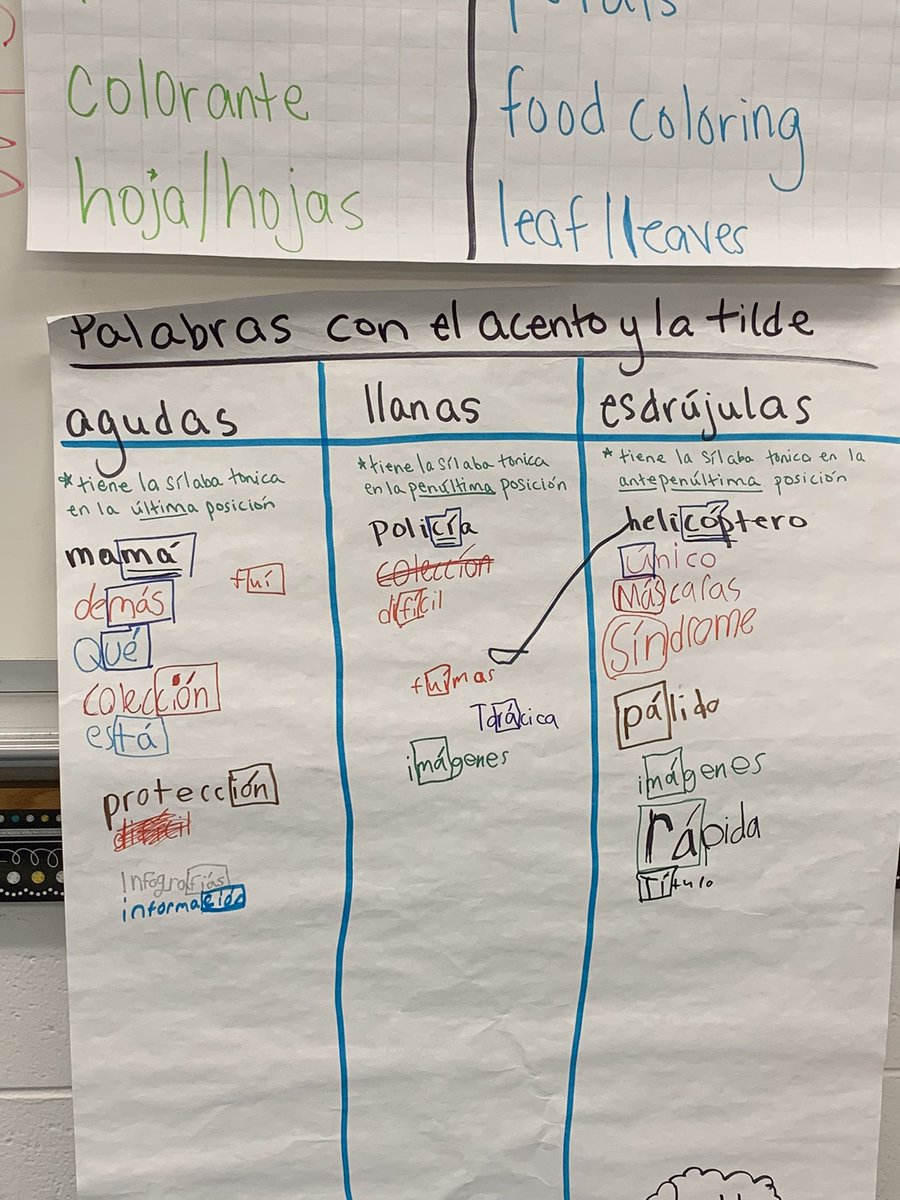 colorante
food coloring
hoja/hojas
leaf/leaves
Palabras con el acento y la tilde
agudas
*tiene la sílaba tonica
en la última posición
mamá
fuí
demás
Qué
colección
está
protección
Infografías
información
llanas
*tiene la sílaba tonica
en la penúltima posición
policía
colección
difícil
fuímas
Torácica
imágenes
esdrújulas
*tiene la sílaba tonica en la
antepenúltima posición
helicóptero
Único
Máscaras
Síndrome
pálido
imágenes
rápida
Título